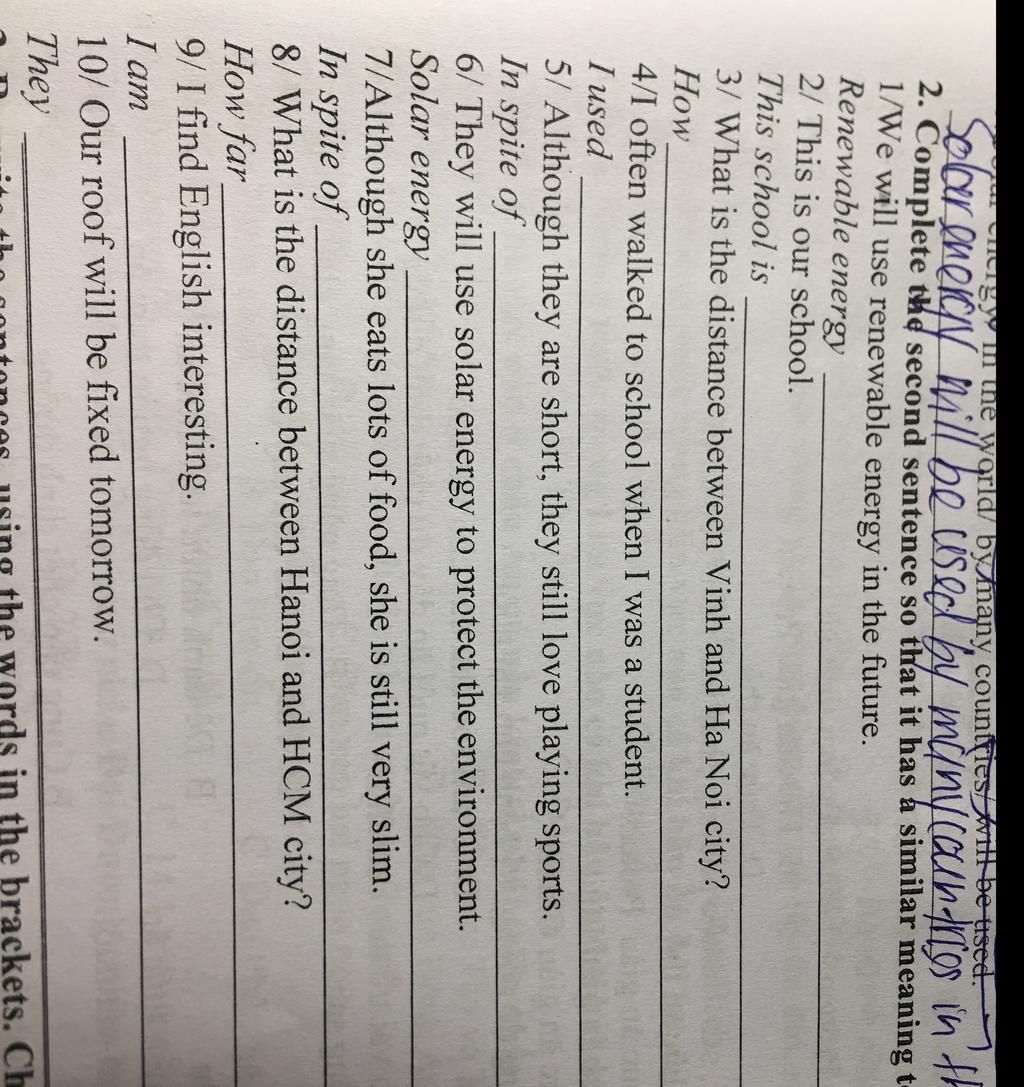 in the world/ by many countries/ will be used.
Solar energy will be used by many countries in
2. Complete the second sentence so that it has a similar meaning t
1/We will use renewable energy in the future.
Renewable energy
2/ This is our school.
This school is
3/ What is the distance between Vinh and Ha Noi city?
How
4/I often walked to school when I was a student.
I used
5/ Although they are short, they still love playing sports.
In spite of
6/ They will use solar energy to protect the environment.
Solar energy
7/Although she eats lots of food, she is still very slim.
In spite of
8/ What is the distance between Hanoi and HCM city?
How far
9/ I find English interesting.
I am
10/ Our roof will be fixed tomorrow.
They
the sentences using the words in the brackets. Ch